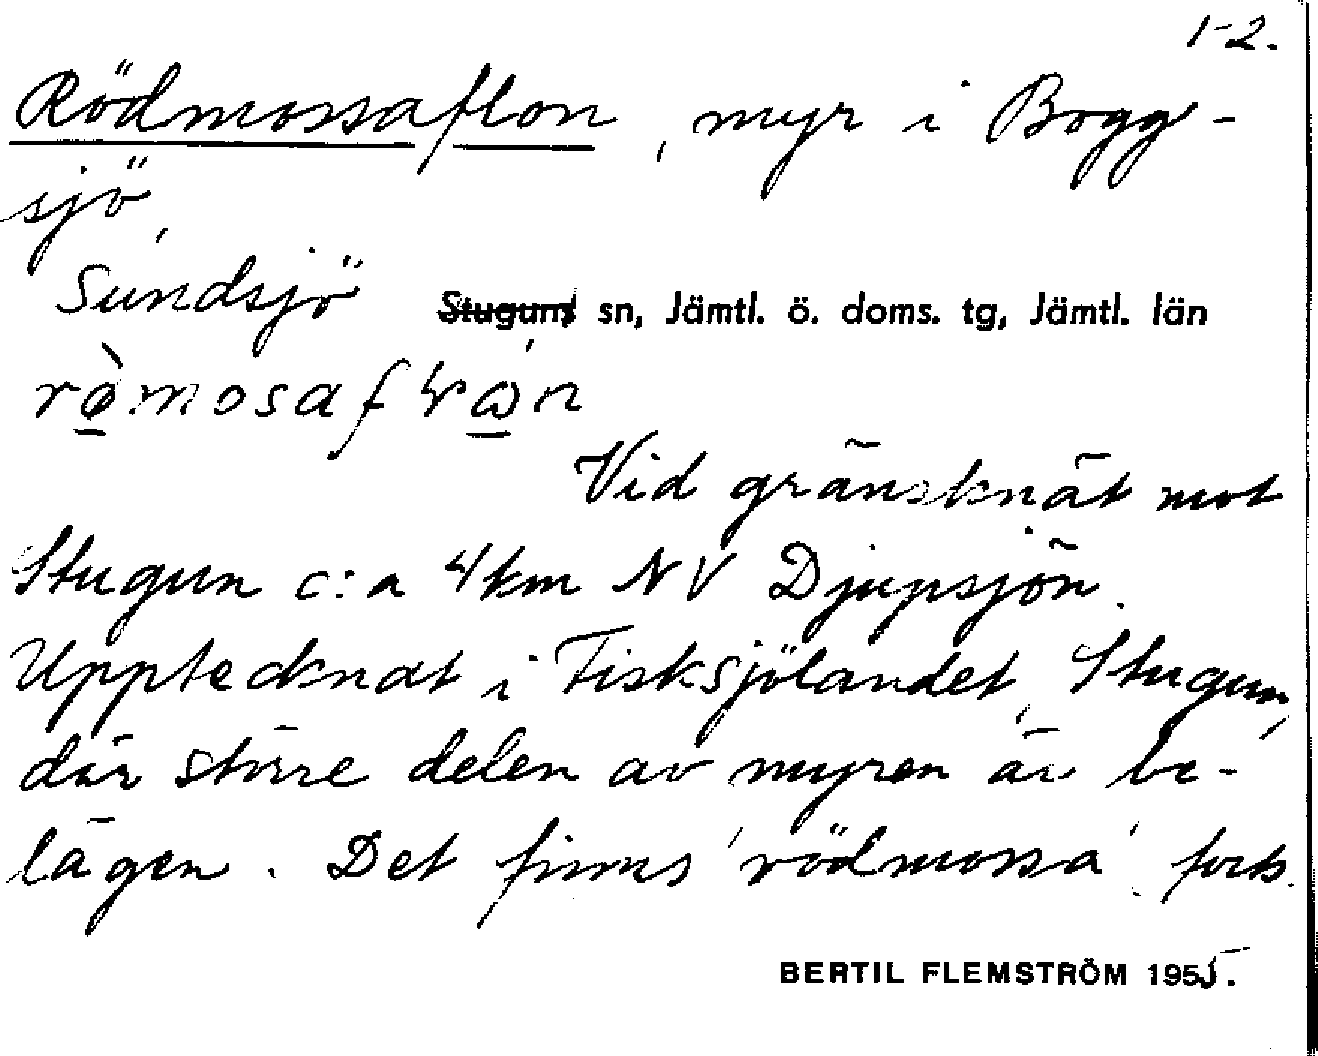 1-2.
Rödmossaflon, myr i Bogg-
sjö,
Sundsjö ~~Stuguns~~ sn, Jämtl. ö. doms. tg, Jämtl. län
Vid gränsknät mot
Stugun c:a 4 km NV Djupsjön.
Upptecknat i Fisksjölandet, Stugun,
där större delen av myren är be-
lägen. Det finns 'rödmossa'. forts.
BERTIL FLEMSTRÖM 1955.